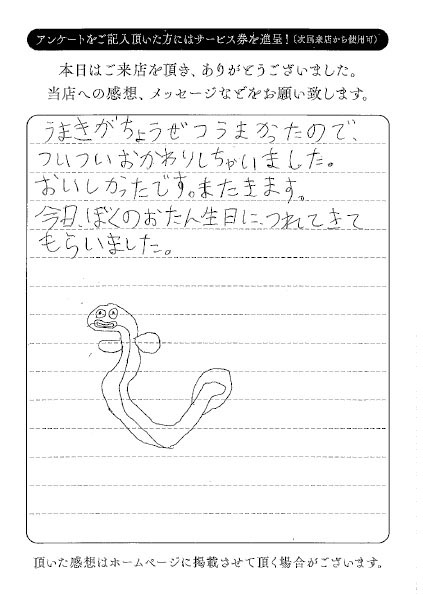 アンケートをご記入頂いた方にはサービス券を進呈！（次回来店から使用可）
本日はご来店を頂き、ありがとうございました。
当店への感想、メッセージなどをお願い致します。
うまきがちょうぜつうまかったので、
ついついおかわりしちゃいました。
おいしかったです。またきます。
今日、ぼくのおたん生日に、つれてきて
もらいました。
頂いた感想はホームページに掲載させて頂く場合がございます。